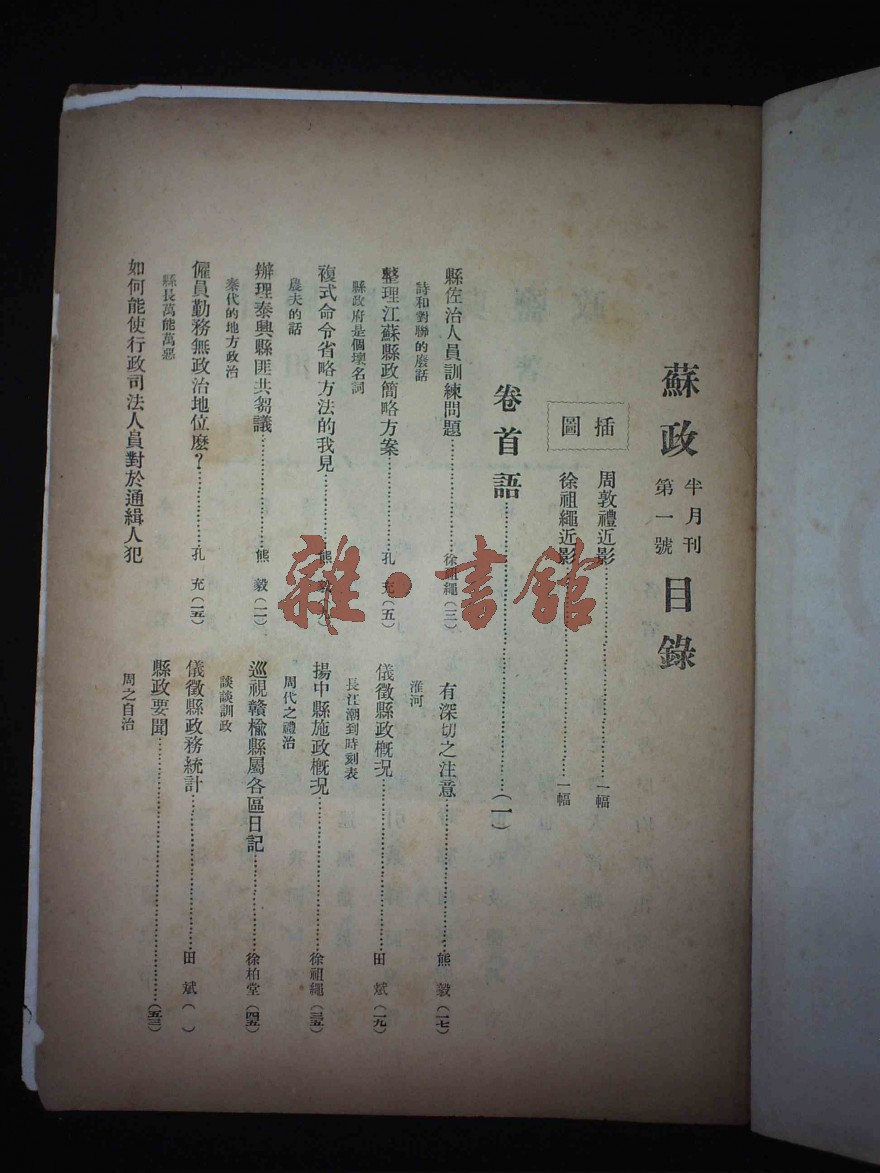 蘇政半月刊第一號目錄
插圖
周敦禮近影……一幅
徐祖繩近影……一幅
卷首語……(一)
縣佐治人員訓練問題……徐祖繩(三)
詩和對聯的廢話
整理江蘇縣政簡略方案……孔充(五)
縣政府是個壞名詞
複式命令省略方法的我見……熊毅(九)
農夫的話
辦理泰興縣匪共芻議……熊毅(一一)
秦代的地方政治
僱員勤務無政治地位麽?……孔充(一五)
縣長萬能萬惡
如何能使行政司法人員對於通緝人犯
有深切之注意……熊毅(一七)
淮河
儀徵縣政概況……田斌(一九)
長江潮到時刻表
揚中縣施政概況……徐祖繩(三五)
周代之禮治
巡視贛榆縣屬各區日記……徐柏堂(四五)
談談訓政
儀徵縣政務統計……田斌( )
縣政要聞……(五三)
周之自治
雜·書館